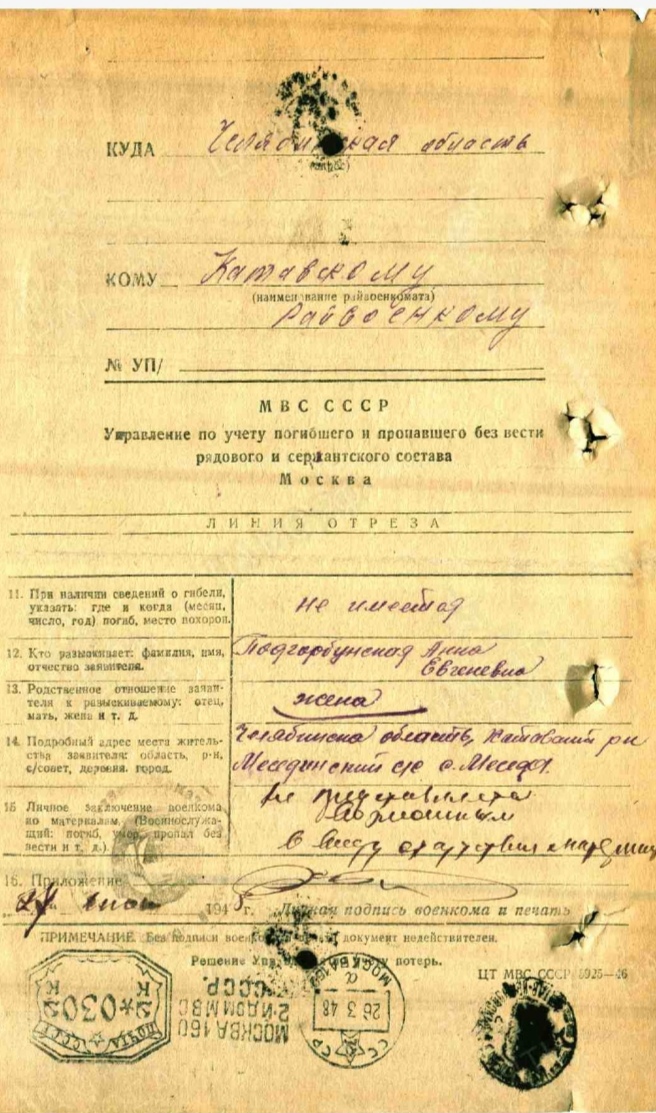 КУДА Челябинская область
КОМУ Катавскому
(наименование райвоенкомата)
Райвоенкому
№ УП/
МВС СССР
Управление по учету погибшего и пропавшего без вести
рядового и сержантского состава
Москва
ЛИНИЯ ОТРЕЗА
11. При наличии сведений о гибели,
указать: где и когда (месяц,
число, год) погиб, место похорон.
не имеется
12. Кто разыскивает: фамилия, имя,
отчество заявителя.
Подгорбунская Анна
Евгеневна
13. Родственное отношение заяви-
теля к разыскиваемому: отец,
мать, жена и т. д.
жена
14. Подробный адрес места житель-
ства заявителя: область, р-н,
с/совет, деревня, город.
Челябинска область, Катавский рн
Месединский с/с с. Меседа
15 Личное заключение военкома
по материалам. (Военнослужа-
щий: погиб, умер, пропал без
вести и т. д.)
не представляется
в виду отсутствия
16. Приложение
194 г. Личная подпись военкома и печать
ПРИМЕЧАНИЕ. Без подписи документ недействителен.
Решение потерь.
ЦТ МВС СССР 5925—46
ПОЧТА СССР
030
К К
МОСКВА 160
2-й ДОМ МВС
СССР.
МОСКВА 160
26 3 48
СССР